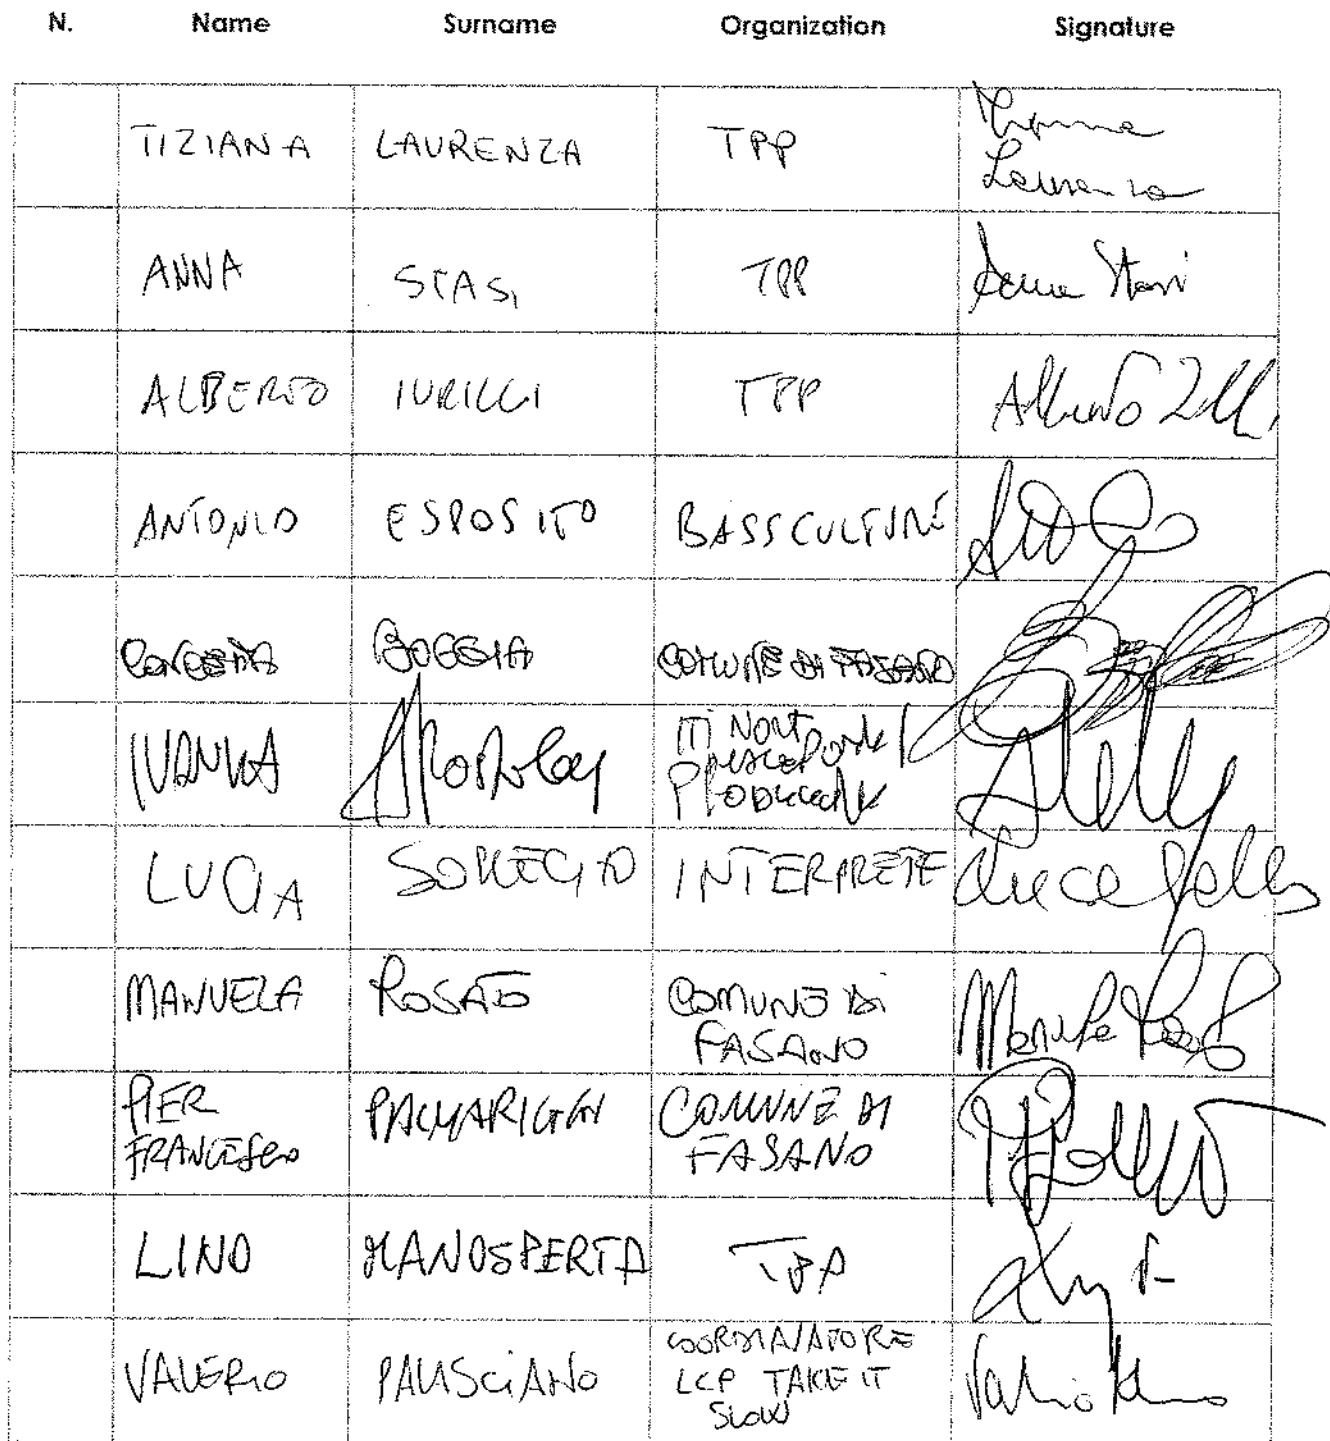 N. Name Surname Organization Signature
TIZIANA LAURENZA TPP Tiziana
Laurenza
ANNA STASI TPP Anna Stasi
ALBERTO IURILLI TPP Alberto
ANTONIO ESPOSITO BASSCULTURE
CONCETTA BOGGIA COMUNE DI FASANO
IVANKA
LUCIA INTERPRETE
MANUELA ROSATO COMUNE DI
FASANO Manuela Rosato
PIER
FRANCESCO PALMARIGGI COMUNE DI
FASANO
LINO MANOSPERTA TPP
VALERIO PALISCIANO COORDINATORE
LCP TAKE IT
SLOW